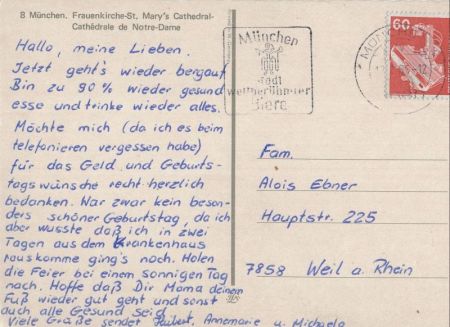 8 München. Frauenkirche-St. Mary's Cathedral-
Cathédrale de Notre-Dame
Hallo, meine Lieben.
Jetzt geht's wieder bergauf
Bin zu 90% wieder gesund
esse und trinke wieder alles.
Möchte mich (da ich es beim
telefonieren vergessen habe)
für das Geld und Geburts-
tagswünsche recht herzlich
bedanken. War zwar kein beson-
ders schöner Geburtstag, da ich
aber wusste daß ich in zwei
Tagen aus dem Krankenhaus
rauskomme ging's noch. Holen
die Feier bei einem sonnigen Tag
nach. Hoffe daß Dir Mama deinem
Fuß wieder gut geht und sonst
auch alle Gesund seid.
Viele Grüße sendet Hubert, Annemarie u. Michaela
München
Stadt
weltberühmter
Biere
60
Fam.
Alois Ebner
Hauptstr. 225
7858 Weil a. Rhein